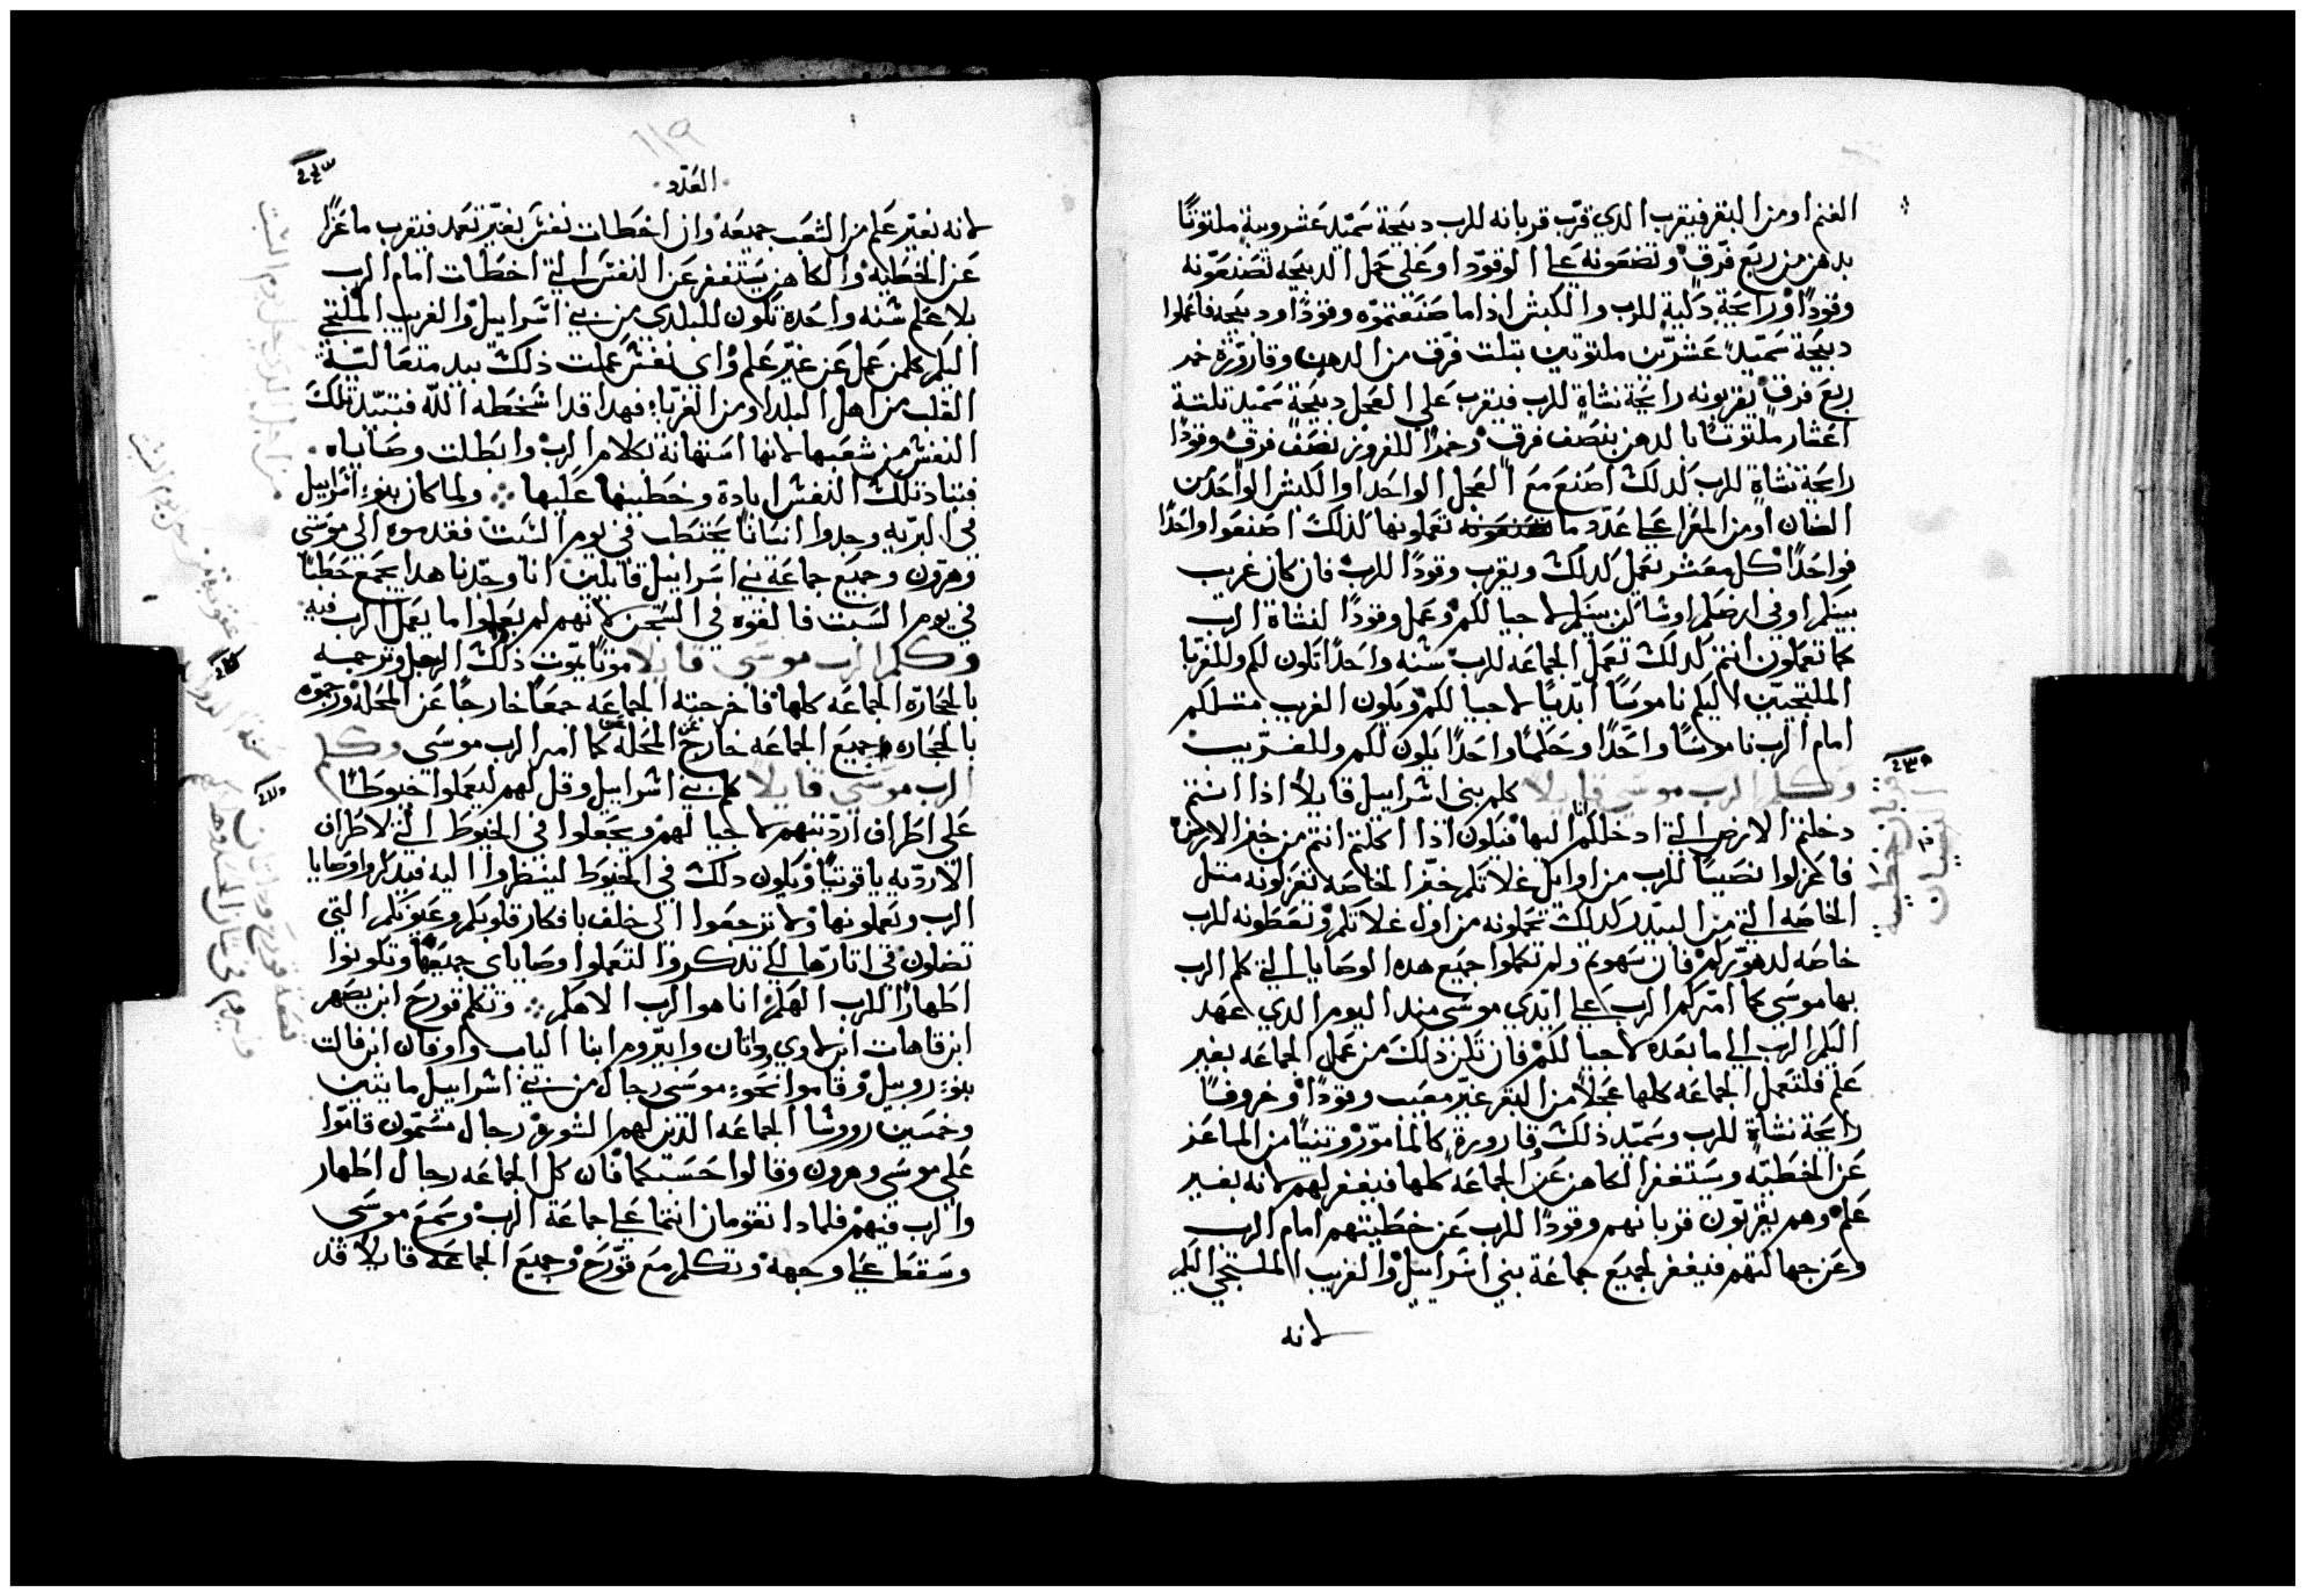 الغنم او من البقر فيقرب الدي قرب قربانه للرب دبيحة سميد عشر ويبة ملتوتًا
بدهن من ربع فرق وتضعونه على الوقود او على عمل الدبيحه تصنعونه
وقودًا ورايحة دكية للرب والكبش اذا ما صنعتموه وقودًا ودبيحه فاعملوا
دبيحة سميد عشرين ملتوتين بتلت فرق من الدهن وقارورة خمر
ربع فرق يقربونه رايحة نشاة للرب فيقرب على العجل دبيحة سميد تلتة
اعشار ملتوتًا بالدهن بنصف فرق وخمرًا للفروين نصف فرق وقودًا
رايحة نشاة للرب كدلك اصنع مع العجل الواحد او الكبش الواحد من
الضان او من المعزا على عدد ما تعملونها كذلك اصنعوا واحدًا
فواحدًا كل معشر يعمل كدلك ويقرب وقودًا للرب فان كان غريب
بينكم او في ارضكم او ساكن بينكم لاجيالكم وعمل وقودًا لنشاة الرب
كما تعملون انتم كدلك تعمل الجماعه للرب سنه واحدًا تكون لكم وللغربا
الملتجيين اليكم ناموسًا ابديًا لاجيالكم ويكون الغريب متلكم
امام الرب ناموسًا واحدًا وحكمًا واحدًا يكون لكم وللغريب
وكلم الرب موسى قايلا كلم بني اسراييل قايلاً اذا انتم
دخلتم الارض التي ادخلكم انا اليها فيكون اذا اكلتم انتم من خبز الارض
فاعزلوا نصيبًا للرب من اوايل غلاتكم خبز الخاصه تعزلونه متل
الخاصه التي من البيدر كدلك تحملونه من اول غلاتكم وتعطونه للرب
خاصه لدهوركم فان سهوتم ولم تكملوا جميع هده الوصايا التي كلم الرب
بها موسى كما امركم الرب على ايدي موسى مند اليوم الدي عهد
اليكم الرب الى ما بعده لاجيالكم فان تكن ذلك من عمل الجماعه بغير
علم فلتعمل الجماعه كلها عجلاً من البقر غير معيب وقودًا وخروفًا
رايحة نشاة للرب وسميد ذلك قارورة كالمامور وتنيًا من الماعز
عن الخطيه ويستغفر الكاهن عن الجماعه كلها فيغفر لهم لانه بغير
علم وهم يقربون قربانهم وقودًا للرب عن خطيتهم امام الرب
وعن جهالتهم فيغفر لجميع جماعة بني اسراييل والغريب الملتجي اليكم
لانه
قربان خطية
النسيان
العدد
لانه بغير علم من الشعب جميعه وان اخطات نفس بغير تعمد فيقرب ماعزًا
عن الخطيه والكاهن يستغفر عن النفس التي اخطات امام الرب
بلا علم سنه واحده تكون للبلدي من بني اسراييل والغريب الملتجي
اليكم كلمن عمل عن غير علم واي نفس عملت ذلك بيد متعالية
القلب من اهل البلد او من الغربا فهدا قد اسخطه الله فتبيد تلك
النفس من شعبها لانها استهانة بكلام الرب وابطلت وصاياه
فتباد تلك النفس ابادة وخطيتها عليها ولما كان بنو اسراييل
في البريه وجدوا انسانًا يحتطب في يوم السبت فقدموه الى موسى
وهرون وجميع جماعة بني اسراييل قايلين انا وجدنا هدا يجمع حطبًا
في يوم السبت فالقوه في السجن لانهم لم يعلموا ما يعمل الرب فيه
وكلم الرب موسى قايلا موتًا يموت ذلك الرجل وترجمه
بالحجارة الجماعه كلها فاخرجته الجماعه جمعًا خارجًا عن المحله ورجموه
بالحجاره جميع الجماعه خارج عن المحلة كما امر الرب موسى وكلم
الرب موسى قايلا كلم بني اسراييل وقل لهم ليعملوا خيوطًا
على اطراف ارديتهم لاجيالهم ويجعلوا في الخيوط التي لاطراف
الارديه ياقوتيًا ويكون دلك في الخيوط لينظروا اليه فيدكروا وصايا
الرب وتعملونها ولا ترجعوا الى خلف بافكار قلوبكم وعيونكم التي
تضلون في اتارها لكي تدكروا لتعملوا وصاياي جميعها وتكونوا
اطهارًا للرب الهكم انا هو الرب الاهكم وتكلم قورح ابن يصهر
ابن قاهات ابن لاوي وداتان وابيروم ابنا الياب واوفان ابن فالت
بنو روبيل وقاموا نحو موسى رجال من بني اسراييل مايتين
وخمسين روسا الجماعه الذين لهم الشورى رجال مسمون قاموا
على موسى وهرون وقالوا حسبكما فان كل الجماعه رجال اطهار
والرب فيهم فلمادا تقومان انتما على جماعة الرب وسمع موسى
وسقط على وجهه وتكلم مع قورح وجميع الجماعه قايلاً قد